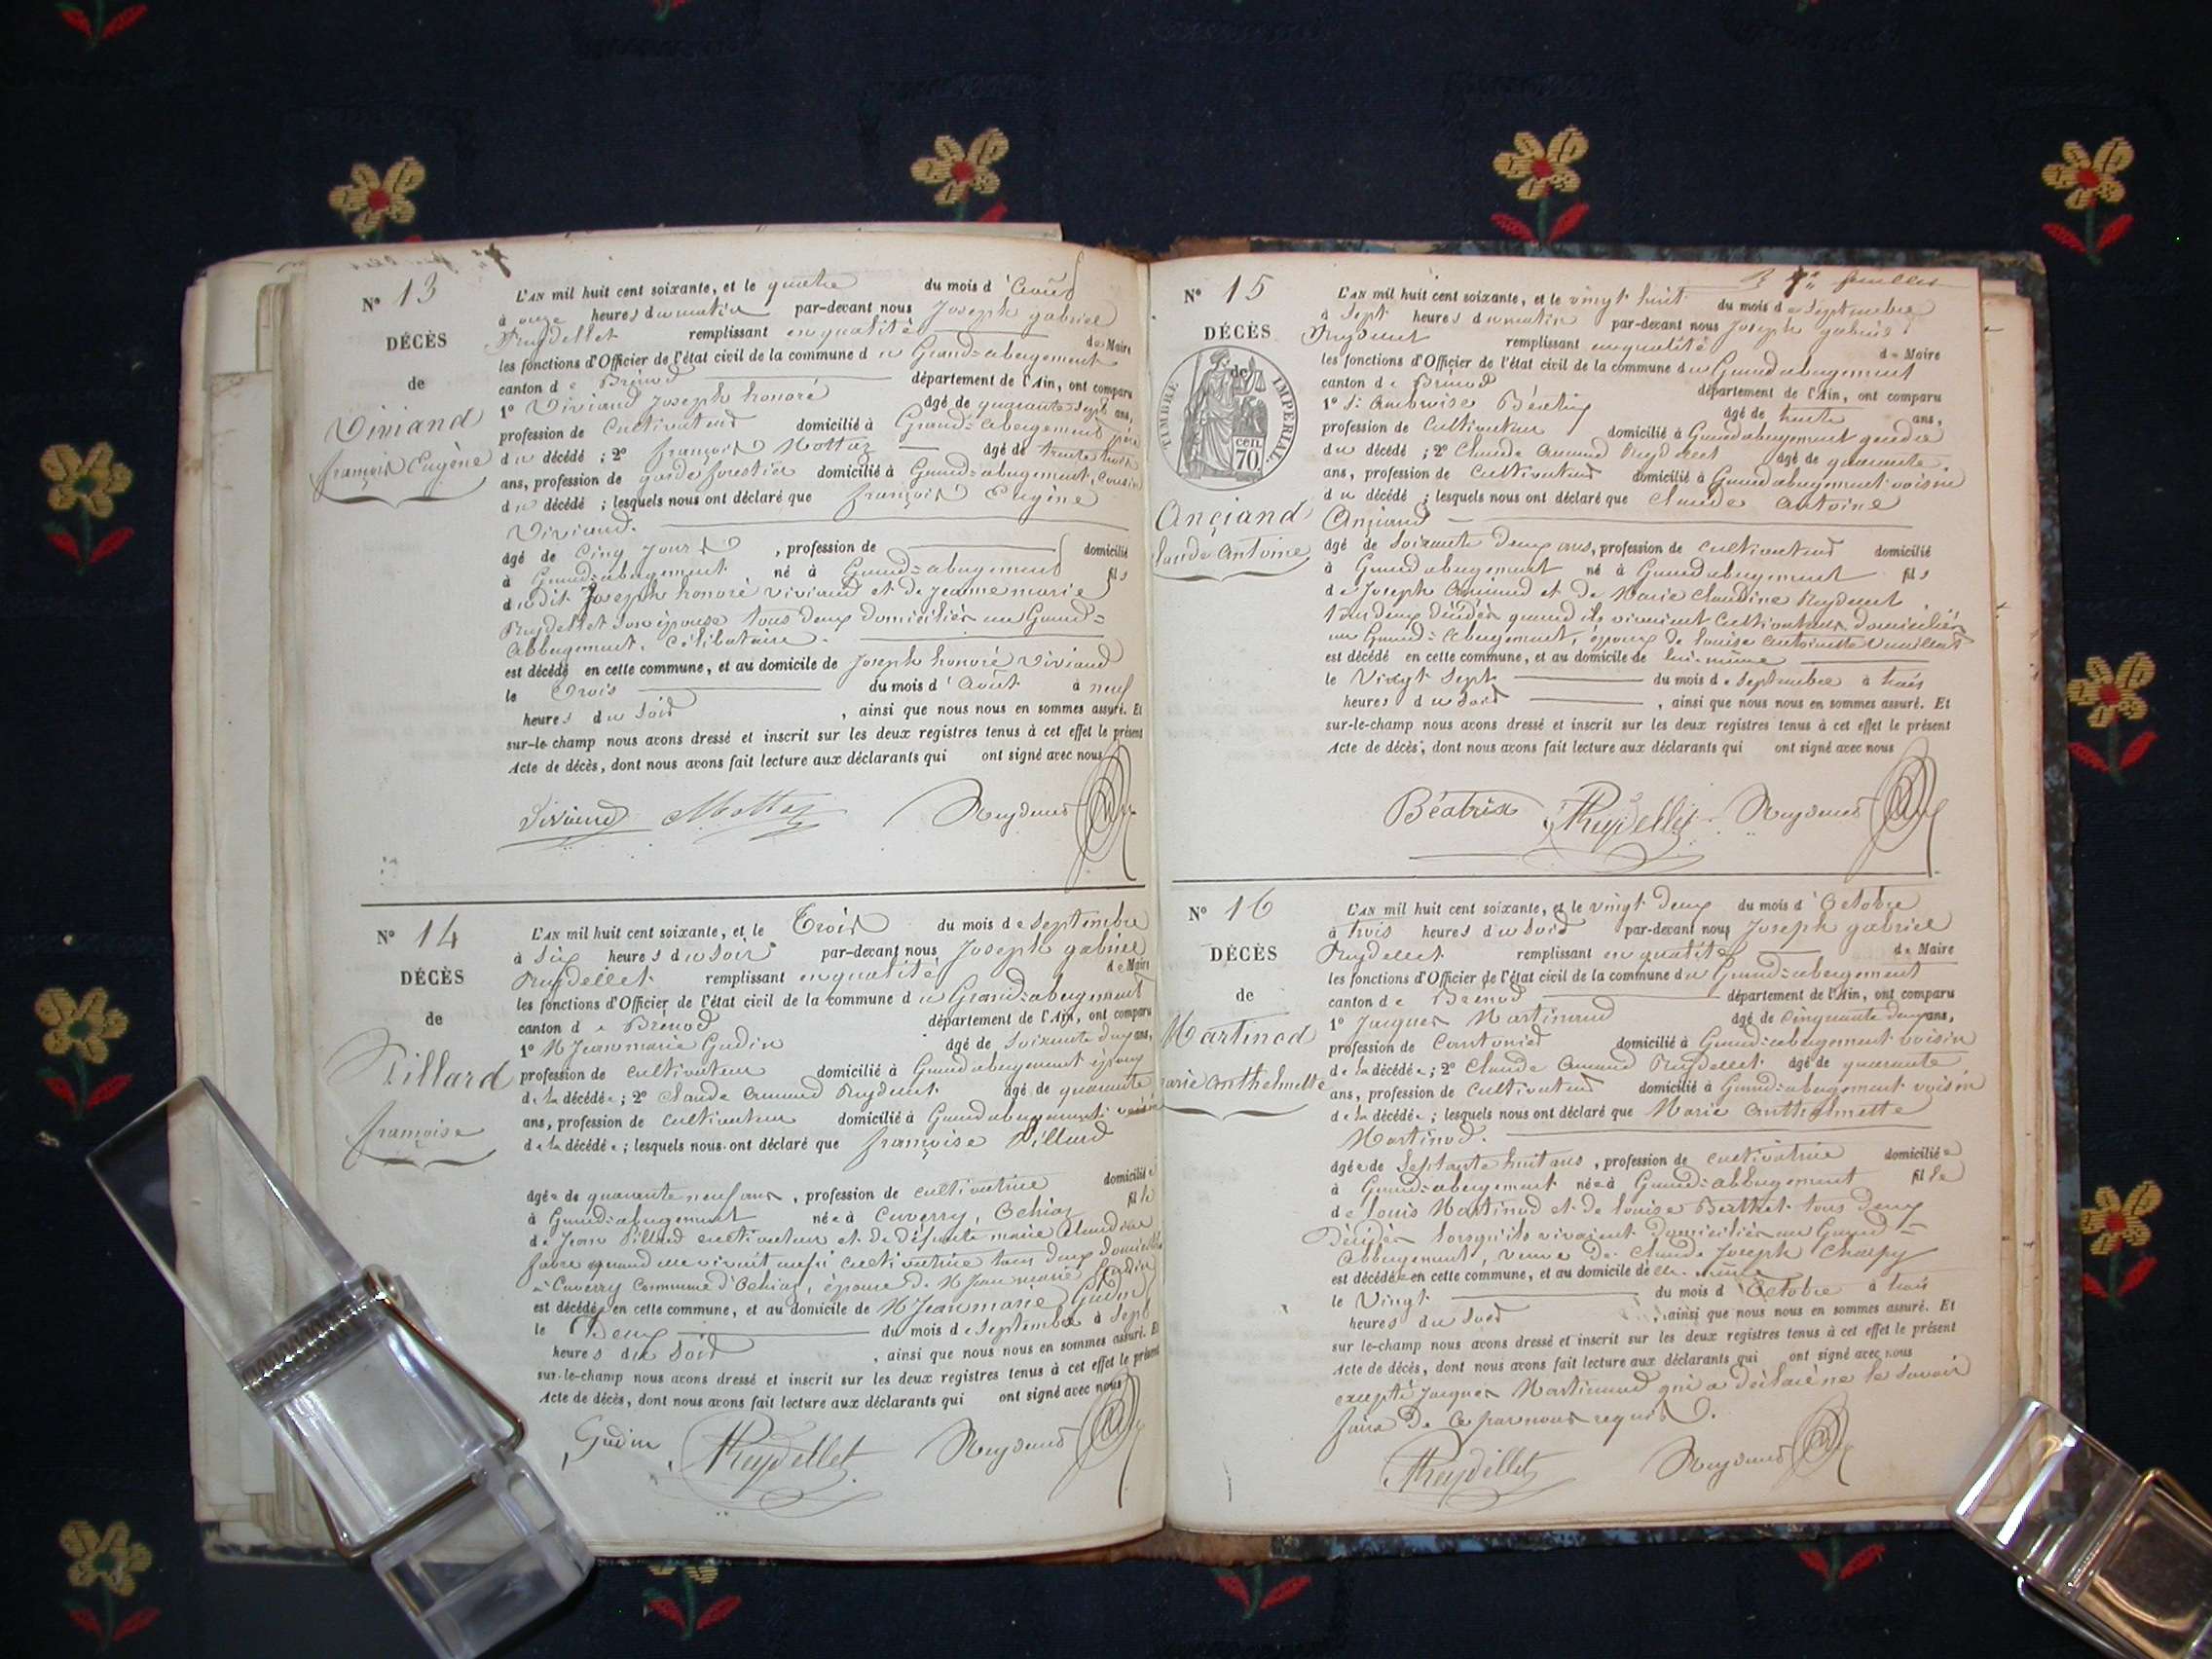 N° 13
DÉCÈS
de
Viviand
françois Eugène
L'AN mil huit cent soixante, et le quatre du mois d'Août
à onze heures du matin par-devant nous Joseph gabriel
Ruydellet remplissant en qualité de Maire
les fonctions d'Officier de l'état civil de la commune du Grand-abergement
canton de Brénod département de l'Ain, ont comparu
1° Viviand Joseph honoré âgé de quarante sept ans,
profession de Cultivateur domicilié à Grand-Abergement père
du décédé ; 2° françois Mottaz âgé de trente trois
ans, profession de garde forestier domicilié à Grand-abergement, Cousin
du décédé ; lesquels nous ont déclaré que françois Eugène
Viviand.
âgé de Cinq Jours , profession de domicilié
à Grand-abergement né à Grand-abergement fils
du dit Joseph honoré Viviand et de Jeanne marie
Ruydellet son épouse tous deux domiciliés au Grand-
Abbergement. Célibataire.
est décédé en cette commune, et au domicile de Joseph honoré Viviand
le Trois du mois d'Août à neuf
heures du Soir , ainsi que nous nous en sommes assuré. Et
sur-le-champ nous avons dressé et inscrit sur les deux registres tenus à cet effet le présent
Acte de décès, dont nous avons fait lecture aux déclarants qui ont signé avec nous
Viviand Mottaz
N° 14
DÉCÈS
de
Pillard
françoise
L'AN mil huit cent soixante, et le Trois du mois de Septembre
à Six heures du Soir par-devant nous Joseph gabriel
Ruydellet remplissant en qualité de Maire
les fonctions d'Officier de l'état civil de la commune du Grand-abergement
canton de Brénod département de l'Ain, ont comparu
1° Jean marie Gudin âgé de Soixante deux ans,
profession de cultivateur domicilié à Grand abergement époux
de la décédée ; 2° Claude Amand Ruydellet âgé de quarante
ans, profession de Cultivateur domicilié à Grand abergement voisin
de la décédée ; lesquels nous ont déclaré que françoise Pillard
âgée de quarante neuf ans , profession de cultivatrice domiciliée
à Grand-abergement née à Cuverry, Ochiaz fille
de Jean Pillard cultivateur et de défunte marie Claudine
favre quand elle vivait aussi cultivatrice tous deux domiciliés
à Cuverry Commune d'Ochiaz, épouse de Jean marie Gudin
est décédée en cette commune, et au domicile de Jean marie Gudin
le Deux du mois de Septembre à Sept
heures du Soir , ainsi que nous nous en sommes assuré. Et
sur-le-champ nous avons dressé et inscrit sur les deux registres tenus à cet effet le présent
Acte de décès, dont nous avons fait lecture aux déclarants qui ont signé avec nous
Gudin Ruydellet
7e feuillet
N° 15
DÉCÈS
de
TIMBRE IMPÉRIAL
70 CEN.
Ançiand
Claude Antoine
L'AN mil huit cent soixante, et le vingt huit du mois de Septembre
à Sept heures du matin par-devant nous Joseph gabriel
Ruydellet remplissant en qualité de Maire
les fonctions d'Officier de l'état civil de la commune du Grand abergement
canton de Brénod département de l'Ain, ont comparu
1° âgé de trente ans,
profession de Cultivateur domicilié à Grand abergement gendre
du décédé ; 2° Claude Amand Ruydellet âgé de quarante
ans, profession de Cultivateur domicilié à Grand abergement voisin
du décédé ; lesquels nous ont déclaré que Claude Antoine
Ançiand
âgé de Soixante deux ans, profession de Cultivateur domicilié
à Grand abergement né à Grand abergement fils
de Joseph Ançiand et de Marie Claudine Ruydellet
tous deux décédés quand ils vivaient Cultivateurs domiciliés
au Grand-Abergement, époux de Louise Antoinette
est décédé en cette commune, et au domicile de lui-même
le Vingt Sept du mois de Septembre à trois
heures du Soir , ainsi que nous nous en sommes assuré. Et
sur-le-champ nous avons dressé et inscrit sur les deux registres tenus à cet effet le présent
Acte de décès, dont nous avons fait lecture aux déclarants qui ont signé avec nous
Béatrix Ruydellet
N° 16
DÉCÈS
de
Martinod
marie Anthelmette
L'AN mil huit cent soixante, et le vingt deux du mois d'Octobre
à trois heures du Soir par-devant nous Joseph gabriel
Ruydellet remplissant en qualité de Maire
les fonctions d'Officier de l'état civil de la commune du Grand-abergement
canton de Brénod département de l'Ain, ont comparu
1° Jacques Martinand âgé de Cinquante deux ans,
profession de Cantonier domicilié à Grand-abergement voisin
de la décédée ; 2° Claude Amand Ruydellet âgé de quarante
ans, profession de Cultivateur domicilié à Grand-abergement voisin
de la décédée ; lesquels nous ont déclaré que Marie Anthelmette
Martinod.
âgée de Septante huit ans , profession de cultivatrice domiciliée
à Grand-abergement née à Grand-abbergement fille
de Louis Martinod et de Louise Berthet tous deux
Décédés lorsqu'ils vivaient domiciliés au Grand-
Abbergement, veuve de Claude Joseph Charpy
est décédée en cette commune, et au domicile d'elle-même
le Vingt du mois d'Octobre à trois
heures du Soir , ainsi que nous nous en sommes assuré. Et
sur le-champ nous avons dressé et inscrit sur les deux registres tenus à cet effet le présent
Acte de décès, dont nous avons fait lecture aux déclarants qui ont signé avec nous
excepté Jacques Martinand qui a déclaré ne le Savoir
faire de ce par nous requis.
Ruydellet